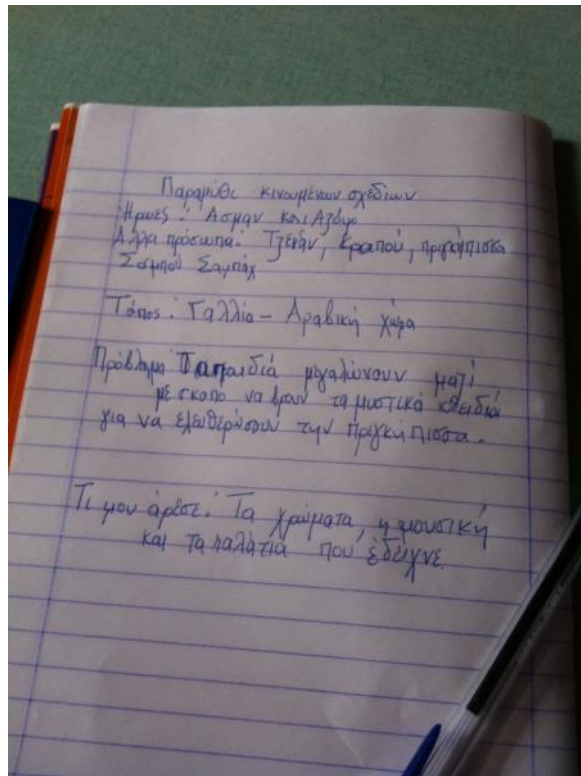 Παραμύθι κινουμένων σχεδίων
Ήρωες: Ασμάν και Αζούρ
Άλλα πρόσωπα: Τζενάν, Κραπού, πριγκίπισσα
Σαμπάχ
Τόπος: Γαλλία - Αραβική χώρα
Πρόβλημα Τα παιδιά μεγαλώνουν μαζί
με σκοπό να βρουν τα μυστικά κλειδιά
για να ελευθερώσουν την πριγκήπισσα.
Τι μου άρεσε: Τα χρώματα, η μουσική
και τα παλάτια που έδειχνε.